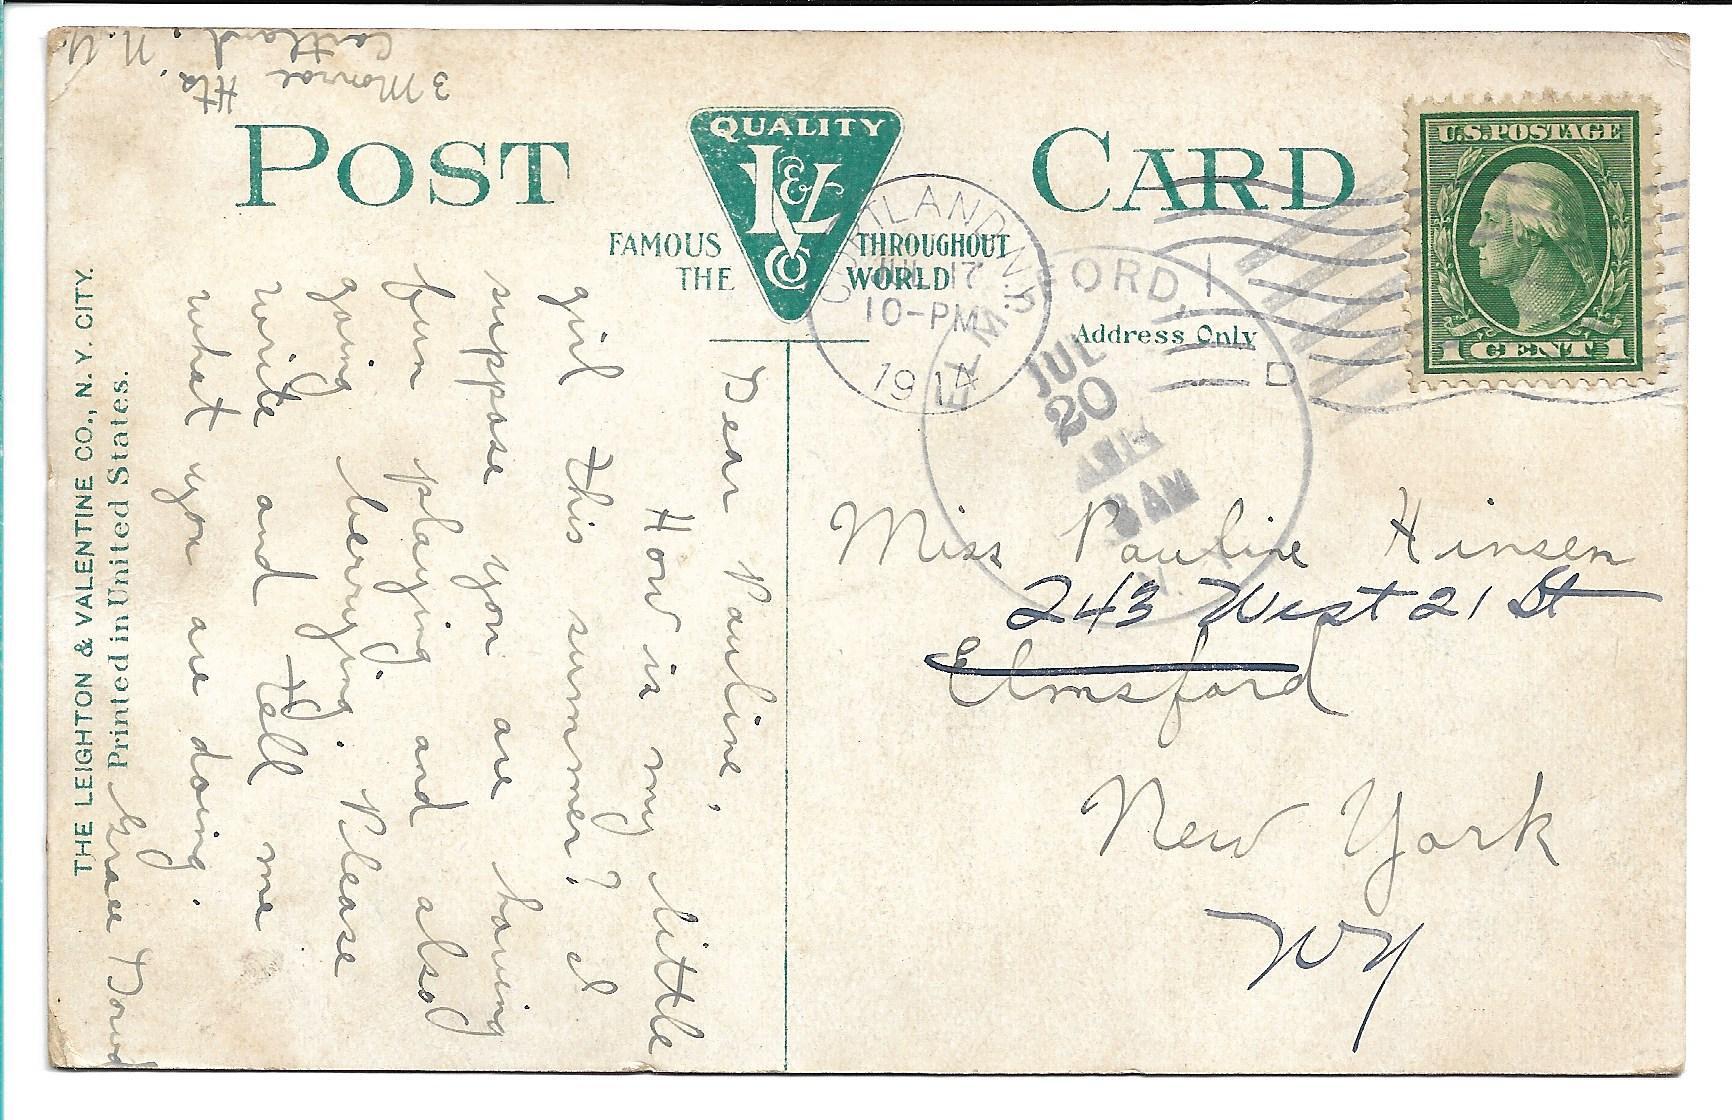 3 Monroe Hts.
Cortland, N.Y.
POST CARD
QUALITY
L & V
CO
FAMOUS THROUGHOUT
THE WORLD
Address Only
U.S. POSTAGE
1 CENT 1
CORTLAND, N.Y.
JUL 17
10-PM
1914
1
D
ELMSFORD,
JUL
20
8 AM
N.
Dear Pauline,
How is my little
girl this summer? I
suppose you are having
fun playing and also
going berrying. Please
write and tell me
what you are doing.
Grace Dowd
THE LEIGHTON & VALENTINE CO., N. Y. CITY.
Printed in United States.
Miss Pauline Hinsen
243 West 21 St
Elmsford
New York
NY